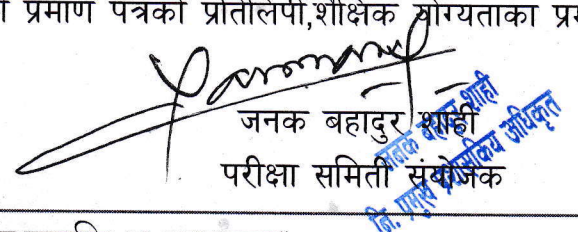 प्रमाण पत्रको प्रतिलिपी,शैक्षिक योग्यताका
जनक बहादुर शाही
परीक्षा समिती संयोजक
जनक बहादुर शाही
नि. प्रमुख प्रशासकिय अधिकृत